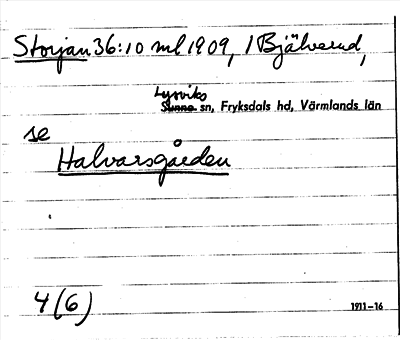 Storjan 36:10 ml 1909, 1 Bjälverud,
Lysviks
Sunne sn, Fryksdals hd, Värmlands län
se
Halvarsgården
4(6)
1911-16